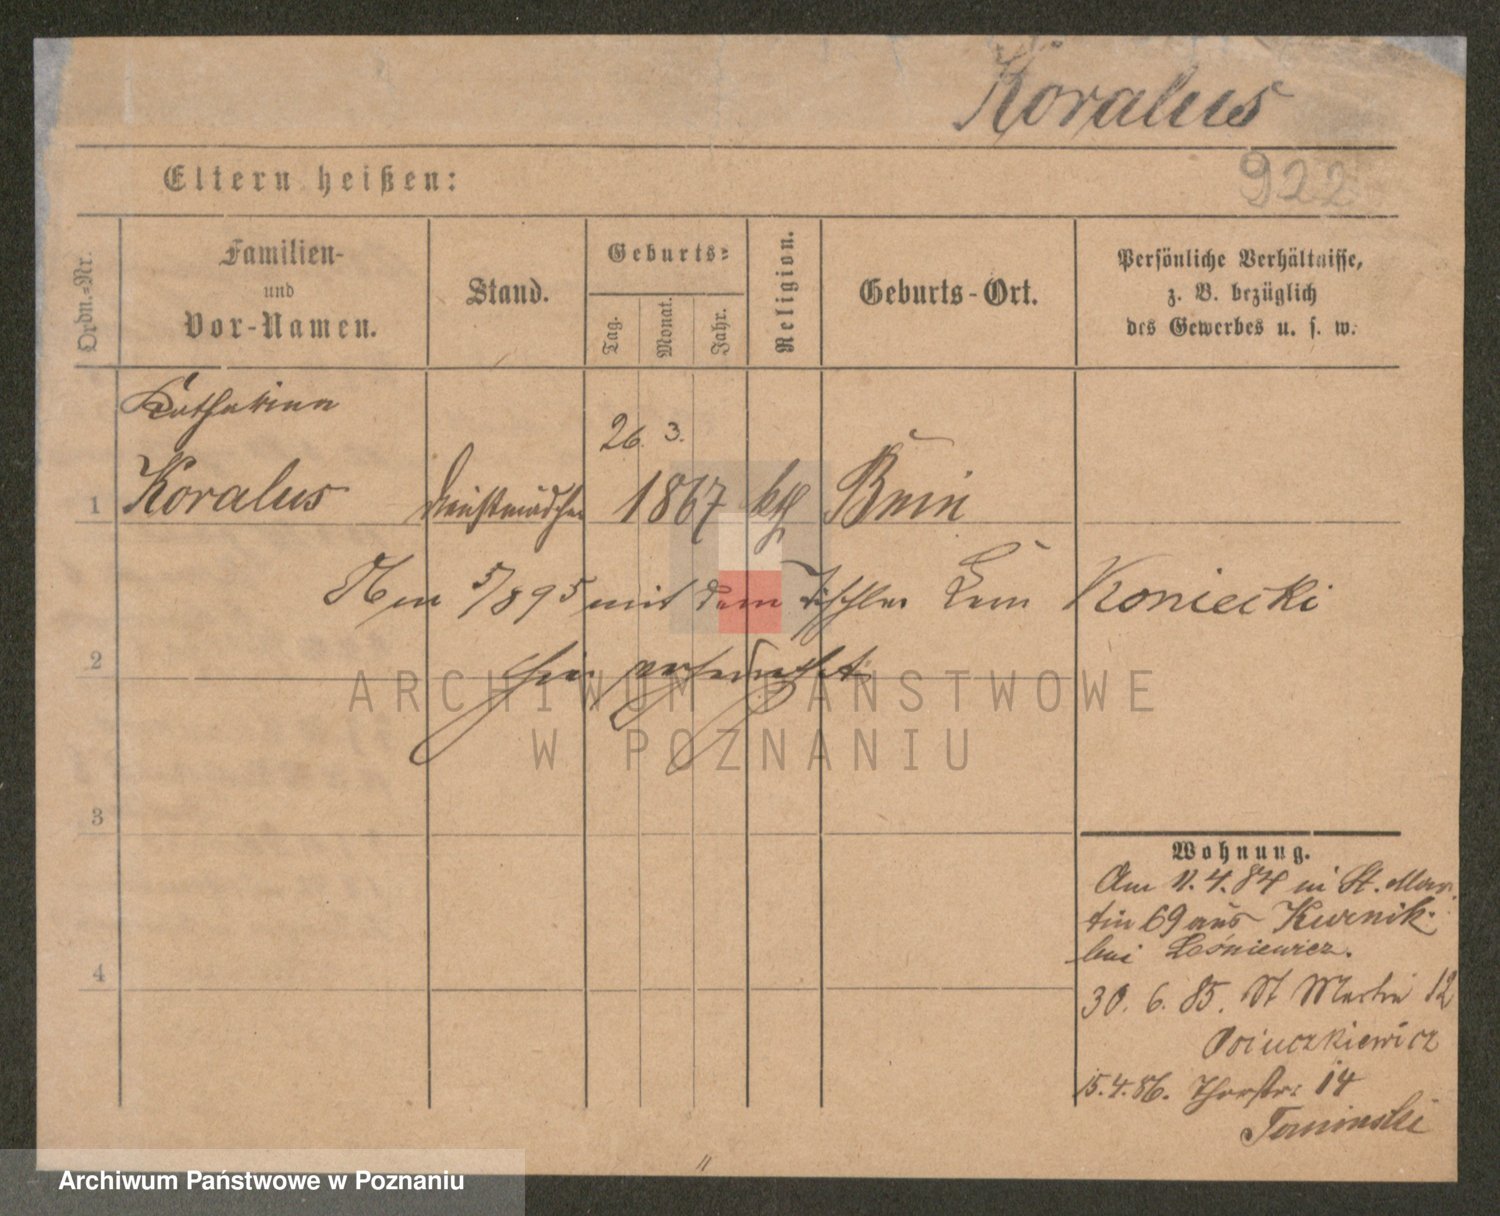 Koralus
922
Eltern heißen:
Ordn.-Nr.
Familien-
und
Vor-Namen.
Stand.
Geburts-
Tag.
Monat.
Jahr.
Religion.
Geburts-Ort.
Persönliche Verhältnisse,
z. B. bezüglich
des Gewerbes u. s. w.
Katharina
26. 3.
1 Koralus Dienstmädchen 1867 kth Bnin
5/895 mit dem Tischler Koniecki
2 hier verheirathet
ARCHIWUM PAŃSTWOWE
W POZNANIU
3
Wohnung.
Am 11.4.84 in St. Mar
tin 69 aus Kurnik.
bei Leśniewicz.
4
30. 6. 85. St Martin 12
15.4.86. Thorstr: 14
Tominski
Archiwum Państwowe w Poznaniu